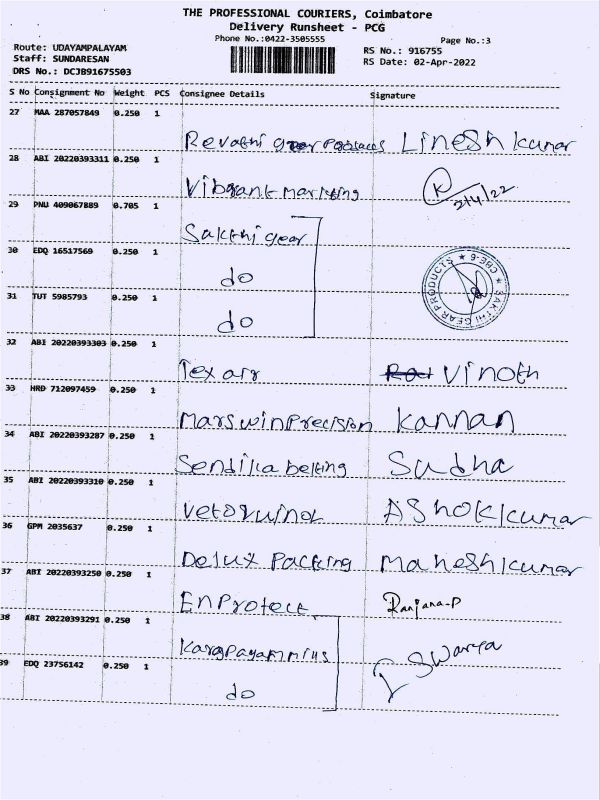 THE PROFESSIONAL COURIERS, Coimbatore
Delivery Runsheet - PCG
Phone No.:0422-3505555
Page No.:3
Route: UDAYAMPALAYAM
RS No.: 916755
Staff: SUNDARESAN
RS Date: 02-Apr-2022
DRS No.: DCJB91675503
S No Consignment No Weight PCS Consignee Details Signature
27 MAA 287057849 0.250 1
Revathi Lineshkumar
28 ABI 20220393311 0.250 1
Vibgrant marketing K 2/4/22
29 PNU 409067889 0.705 1
Sakthi gear
30 EDQ 16517569 0.250 1
do
SAKTHI GEAR PRODUCTS ★ CBE-6 ★
31 TUT 5985793 0.250 1
do
32 ABI 20220393303 0.250 1
Tex air Vinoth
33 HRD 712097459 0.250 1
Marswin Precision Kannan
34 ABI 20220393287 0.250 1
belting Sudha
35 ABI 20220393310 0.250 1
AShokkumar
36 GPM 2035637 0.250 1
Delux Packing Maheshkumar
37 ABI 20220393250 0.250 1
EnProtect Ranjana-P
38 ABI 20220393291 0.250 1
Swarya
39 EDQ 23756142 0.250 1
do